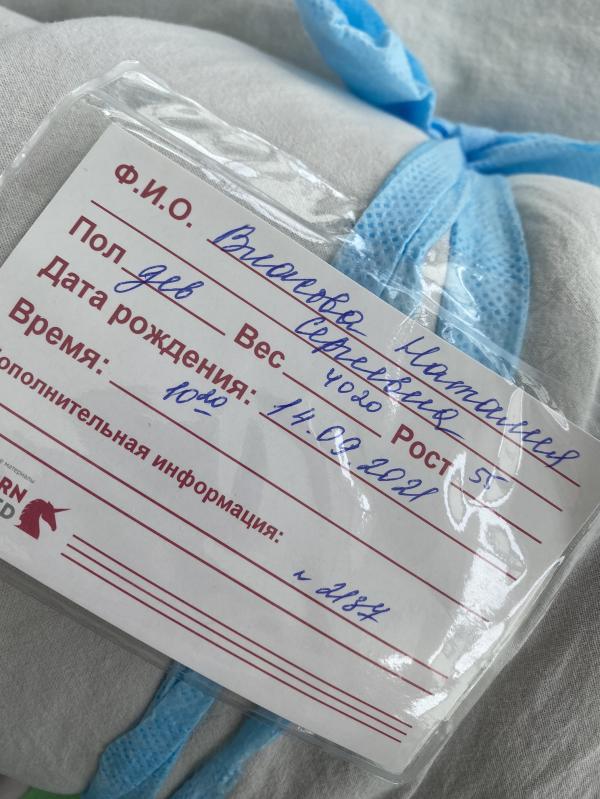 Ф.И.О. Власова Наталия
Сергеевна
Пол дев Вес 4020 Рост 55
Дата рождения: 14.09.2021
Время: 10 20
Дополнительная информация:
материалы
RN
ED
н 2187